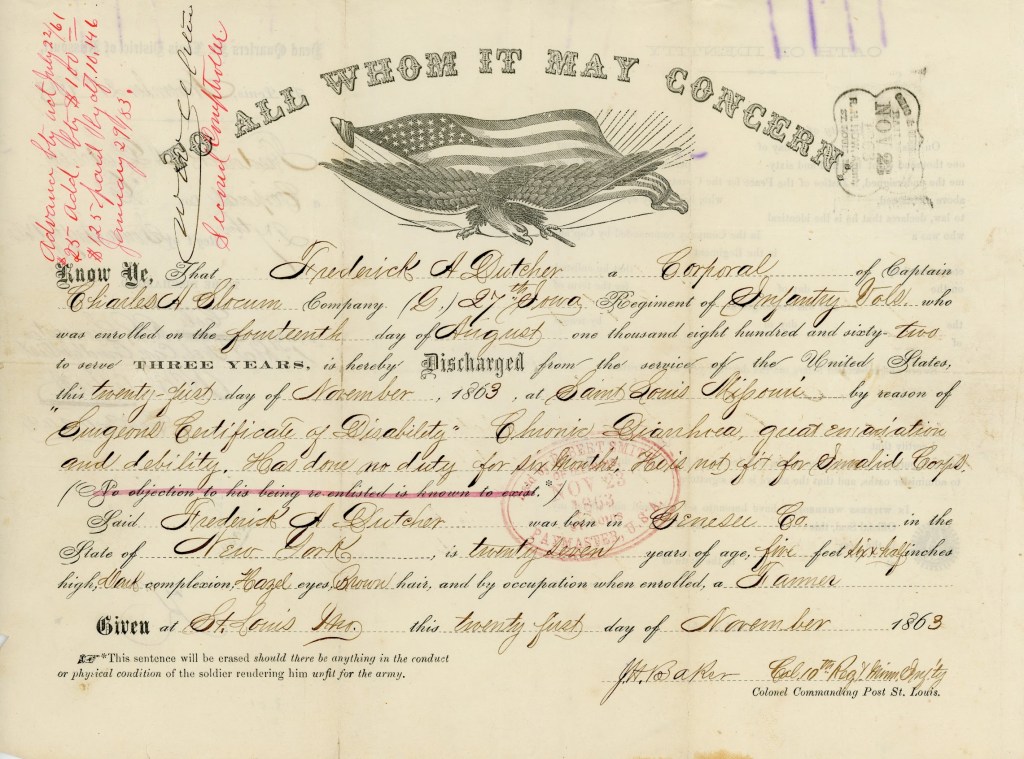 Advance bty act July 22/61
$25 Add. bty $100
$125 paid
January 29/83.
Second Comptroller
TO ALL WHOM IT MAY CONCERN.
NOV 23
Know Ye, That Frederick A Dutcher a Corporal of Captain
Charles A Slocum Company (G,) 27th Iowa Regiment of Infantry Vols who
was enrolled on the fourteenth day of August one thousand eight hundred and sixty-two
to serve THREE YEARS, is hereby Discharged from the service of the United States,
this twenty-first day of November, 1863, at Saint Louis Missouri by reason of
"Surgeons Certificate of Disability" Chronic Diarrhoea, great emaciation
and debility. Has done no duty for six Months. He is not fit for Invalid Corps.
(No objection to his being re-enlisted is known to exist.*)
PAYMASTER, U.S.A.
NOV 23
1863
Said Frederick A Dutcher was born in Genesee Co. in the
State of New York, is twenty seven years of age, five feet six & half inches
high, Dark complexion, Hazel eyes, Brown hair, and by occupation when enrolled, a Farmer
Given at St. Louis Mo. this twenty first day of November 1863
*This sentence will be erased should there be anything in the conduct
or physical condition of the soldier rendering him unfit for the army.
J.H. Baker Col 10th Regt Minn Inf'ty
Colonel Commanding Post St. Louis.